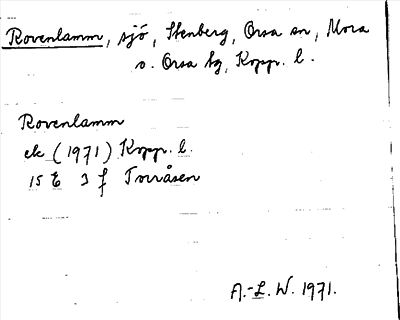 Rovenlamm, sjö, Stenberg, Orsa sn, Mora
o. Orsa tg, Kopp. l.
Rovenlamm
ek (1971) Kopp. l.
15 E 3 f Torråsen
A.-L. W. 1971.